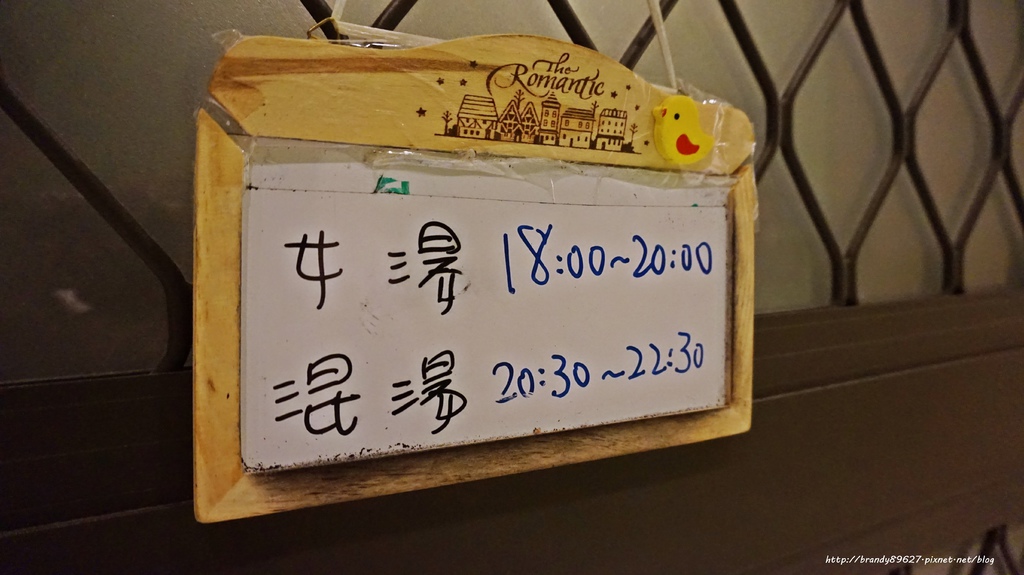 The
Romantic
女湯 18:00~20:00
混湯 20:30~22:30
http://brandy89627.pixnet.net/blog